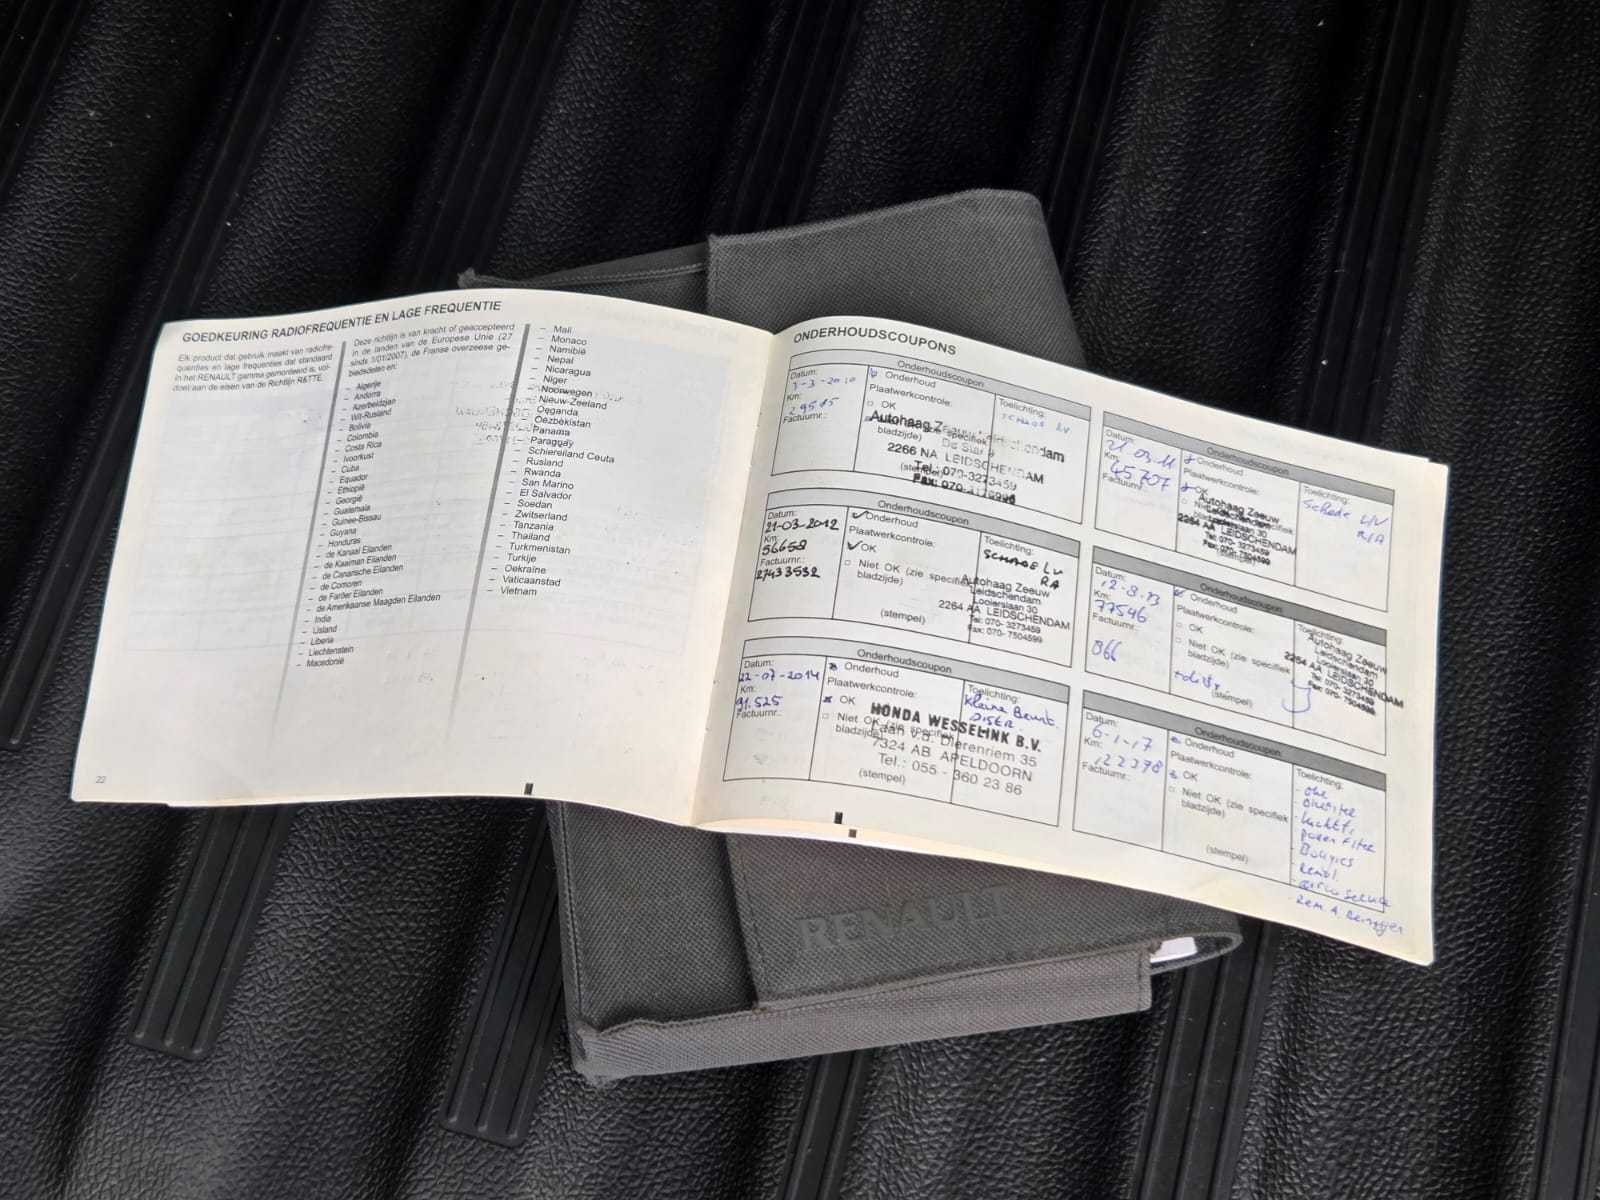 GOEDKEURING RADIOFREQUENTIE EN LAGE FREQUENTIE
Elk product dat gebruik maakt van radiofre-
quenties en lage frequenties dat standaard
in het RENAULT gamma gemonteerd is, vol-
doet aan de eisen van de Richtlijn R&TTE.
Deze richtlijn is van kracht of geaccepteerd
in de landen van de Europese Unie (27
sinds 1/01/2007), de Franse overzeese ge-
biedsdelen en:
– Algerije
– Andorra
– Azerbeidzjan
– Wit-Rusland
– Bolivia
– Colombia
– Costa Rica
– Ivoorkust
– Cuba
– Equador
– Ethiopië
– Georgië
– Guatemala
– Guinee-Bissau
– Guyana
– Honduras
– de Kanaal Eilanden
– de Kaaiman Eilanden
– de Canarische Eilanden
– de Comoren
– de Faröer Eilanden
– de Amerikaanse Maagden Eilanden
– India
– IJsland
– Liberia
– Liechtenstein
– Macedonië
– Mali
– Monaco
– Namibië
– Nepal
– Nicaragua
– Niger
– Noorwegen
– Nieuw-Zeeland
– Oeganda
– Oezbekistan
– Panama
– Paraguay
– Schiereiland Ceuta
– Rusland
– Rwanda
– San Marino
– El Salvador
– Soedan
– Zwitserland
– Tanzania
– Thailand
– Turkmenistan
– Turkije
– Oekraïne
– Vaticaanstad
– Vietnam
22
ONDERHOUDSCOUPONS
Onderhoudscoupon
Datum:
1-3-2010
Km:
29515
Factuurnr.:
Onderhoud
Plaatwerkcontrole:
OK
bladzijde)
(stempel)
Toelichting:
Autohaag Zeeuw Leidschendam
2266 NA LEIDSCHENDAM
Tel.: 070-3273459
Fax: 070-3170996
Onderhoudscoupon
Datum:
21.03.11
Km:
45707
Factuurnr.:
Onderhoud
Plaatwerkcontrole:
OK
Toelichting:
Schade L/V
R/A
Autohaag Zeeuw
Leidschendam
2264 AA LEIDSCHENDAM
Tel: 070- 3273459
Fax: 070- 7504599
Onderhoudscoupon
Datum:
21-03-2012
Km:
56658
Factuurnr.:
27433532
Onderhoud
Plaatwerkcontrole:
OK
Niet OK (zie specifiek
bladzijde)
(stempel)
Toelichting:
SCHADE LV
RA
Autohaag Zeeuw
Leidschendam
Looierslaan 30
2264 AA LEIDSCHENDAM
Tel: 070- 3273459
Fax: 070- 7504599
Onderhoudscoupon
Datum:
12-8-13
Km:
77546
Factuurnr.:
066
Onderhoud
Plaatwerkcontrole:
OK
Niet OK (zie specifiek
bladzijde)
(stempel)
Toelichting:
Autohaag Zeeuw
Leidschendam
Looierslaan 30
2264 AA LEIDSCHENDAM
Tel: 070- 3273459
Fax: 070- 7504599
Onderhoudscoupon
Datum:
22-07-2014
Km:
91.525
Factuurnr.:
Onderhoud
Plaatwerkcontrole:
OK
Niet OK (zie specifiek
bladzijde)
(stempel)
Toelichting:
Kleine Beurt
HONDA WESSELINK B.V.
Laan v.d. Dierenriem 35
7324 AB APELDOORN
Tel.: 055 - 360 23 86
Onderhoudscoupon
Datum:
6-1-17
Km:
122378
Factuurnr.:
Onderhoud
Plaatwerkcontrole:
OK
Niet OK (zie specifiek
bladzijde)
(stempel)
Toelichting:
- olie
- oliefilter
- luchtf.
- Bougies
RENAULT